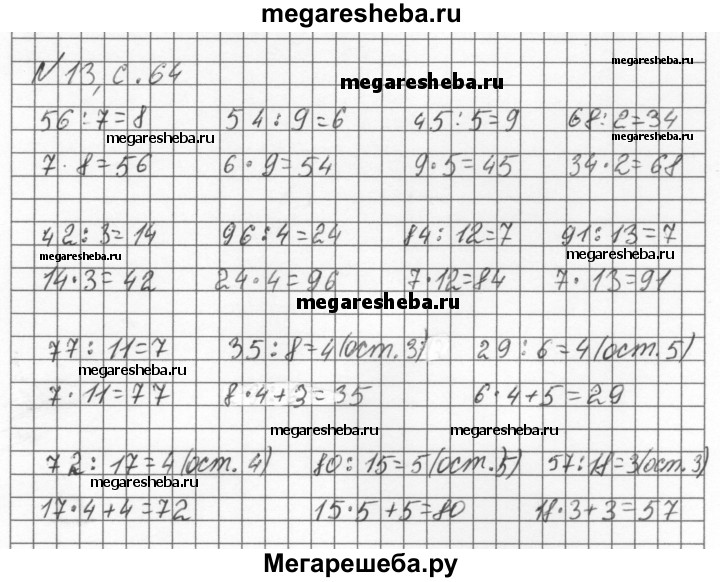 megaresheba.ru
N 13, с. 64
megaresheba.ru
megaresheba.ru
56 : 7 = 8 54 : 9 = 6 45 : 5 = 9 68 : 2 = 34
megaresheba.ru megaresheba.ru
7 · 8 = 56 6 · 9 = 54 9 · 5 = 45 34 · 2 = 68
42 : 3 = 14 96 : 4 = 24 84 : 12 = 7 91 : 13 = 7
megaresheba.ru megaresheba.ru
14 · 3 = 42 24 · 4 = 96 7 · 12 = 84 7 · 13 = 91
megaresheba.ru
77 : 11 = 7 35 : 8 = 4 (ост. 3) 29 : 6 = 4 (ост. 5)
megaresheba.ru
7 · 11 = 77 8 · 4 + 3 = 35 6 · 4 + 5 = 29
megaresheba.ru megaresheba.ru
72 : 17 = 4 (ост. 4) 80 : 15 = 5 (ост. 5) 57 : 18 = 3 (ост. 3)
megaresheba.ru
17 · 4 + 4 = 72 15 · 5 + 5 = 80 18 · 3 + 3 = 57
Мегарешеба.ру